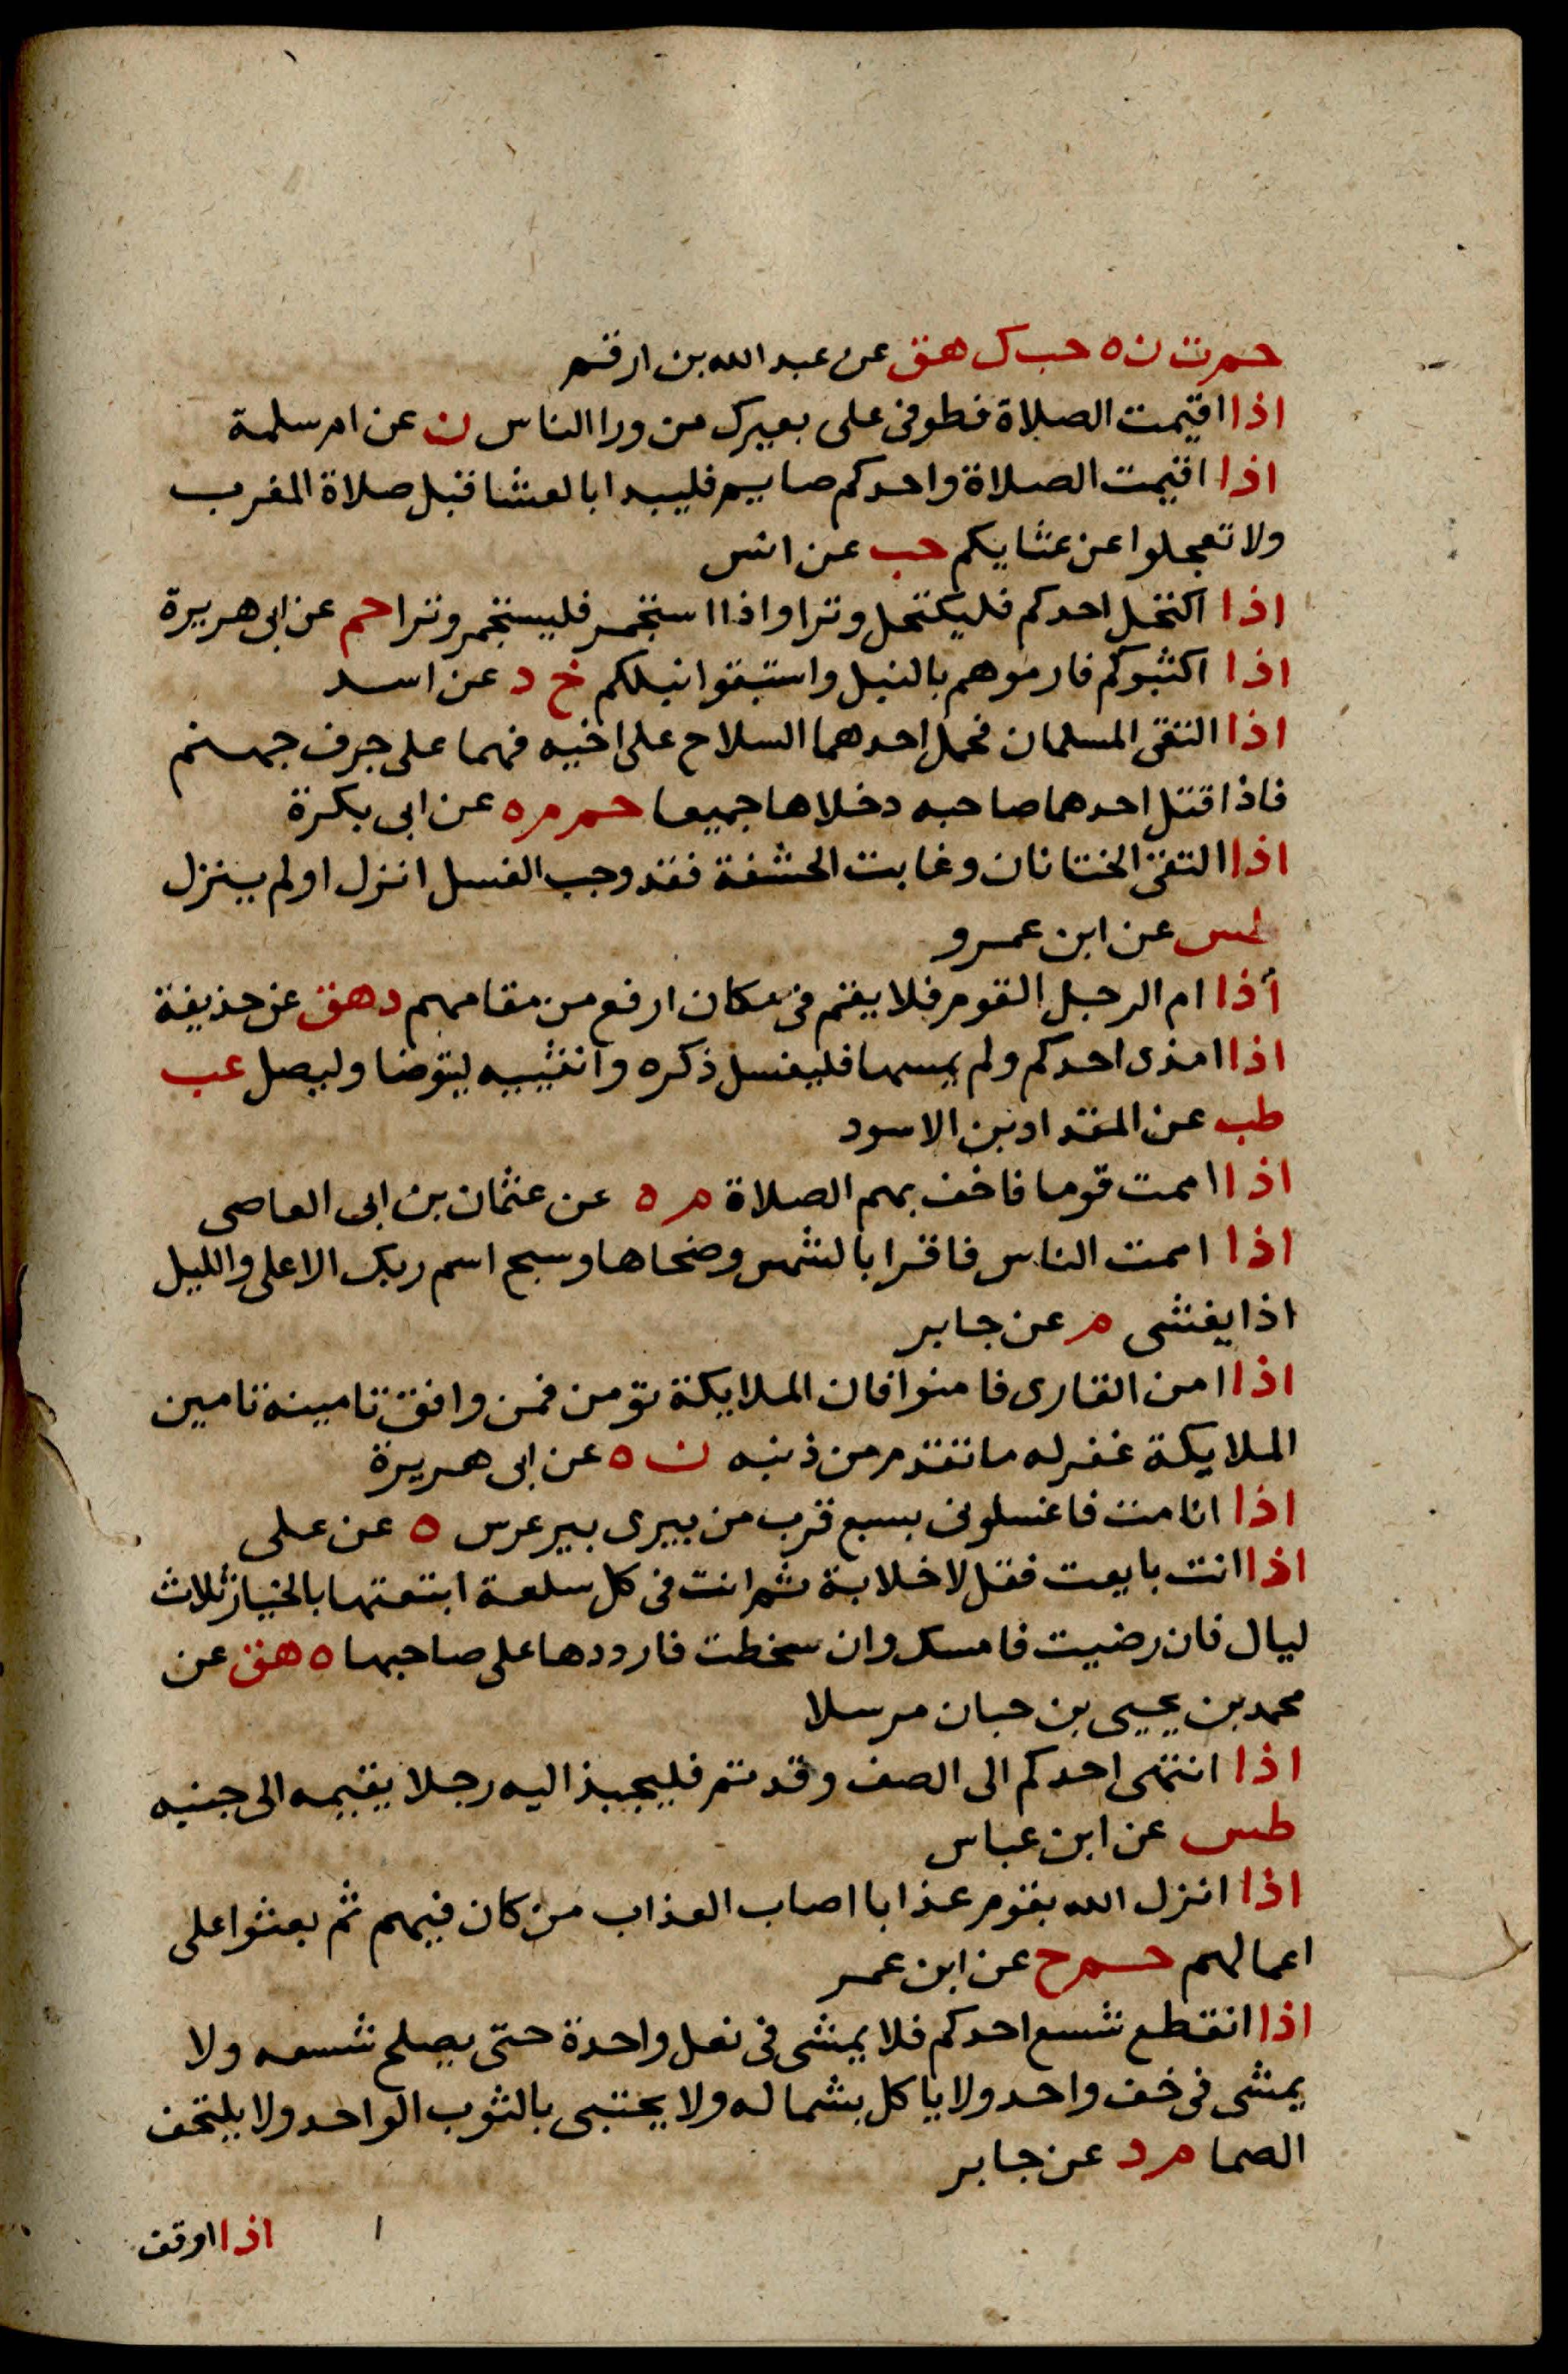 حم ت ن ه حب ك هق عن عبد الله بن ارقم
اذا اقيمت الصلاة فطوفى على بعيرك من ورا الناس ن عن ام سلمة
اذا اقيمت الصلاة واحدكم صايم فليبدا بالعشا قبل صلاة المغرب
ولا تعجلوا عن عشايكم حب عن انس
اذا اكتحل احدكم فليكتحل وترا واذا استجمر فليستجمر وترا حم عن ابى هريرة
اذا اكثبوكم فارموهم بالنبل واستبقوا نبلكم خ د عن اسد
اذا التقى المسلمان فحمل احدهما السلاح على اخيه فهما على جرف جهنم
فاذا قتل احدهما صاحبه دخلاها جميعا حم م ه عن ابى بكرة
اذا التقى الختانان وغابت الحشفة فقد وجب الغسل انزل او لم ينزل
طس عن ابن عمرو
أذا ام الرجل القوم فلا يقم فى مكان ارفع من مقامهم د هق عن حذيفة
اذا امذى احدكم ولم يمسها فليغسل ذكره وانثييه ليتوضا وليصل عب
طب عن المقداد بن الاسود
اذا اممت قوما فاخف بهم الصلاة م ه عن عثمان بن ابى العاصى
اذا اممت الناس فاقرا بالشمس وضحاها وسبح اسم ربك الاعلى والليل
اذا يغشى م عن جابر
اذا امن القارى فامنوا فان الملايكة تومن فمن وافق تامينه تامين
الملايكة غفر له ما تقدم من ذنبه ن ه عن ابى هريرة
اذا انا مت فاغسلونى بسبع قرب من بيرى بير عرس ه عن على
اذا انت بايعت فقل لا خلابة ثم انت فى كل سلعة ابتعتها بالخيار ثلاث
ليال فان رضيت فامسك وان سخطت فارددها على صاحبها ه هق عن
محمد بن يحيى بن حبان مرسلا
اذا انتهى احدكم الى الصف وقد تم فليجبذ اليه رجلا يقيمه الى جنبه
طس عن ابن عباس
اذا انزل الله بقوم عذابا اصاب العذاب من كان فيهم ثم بعثوا على
اعمالهم حم خ عن ابن عمر
اذا انقطع شسع احدكم فلا يمشى فى نعل واحدة حتى يصلح شسعه ولا
يمشى فى خف واحد ولا ياكل بشماله ولا يحتبى بالثوب الواحد ولا يلتحف
الصما م د عن جابر
اذا اوقف